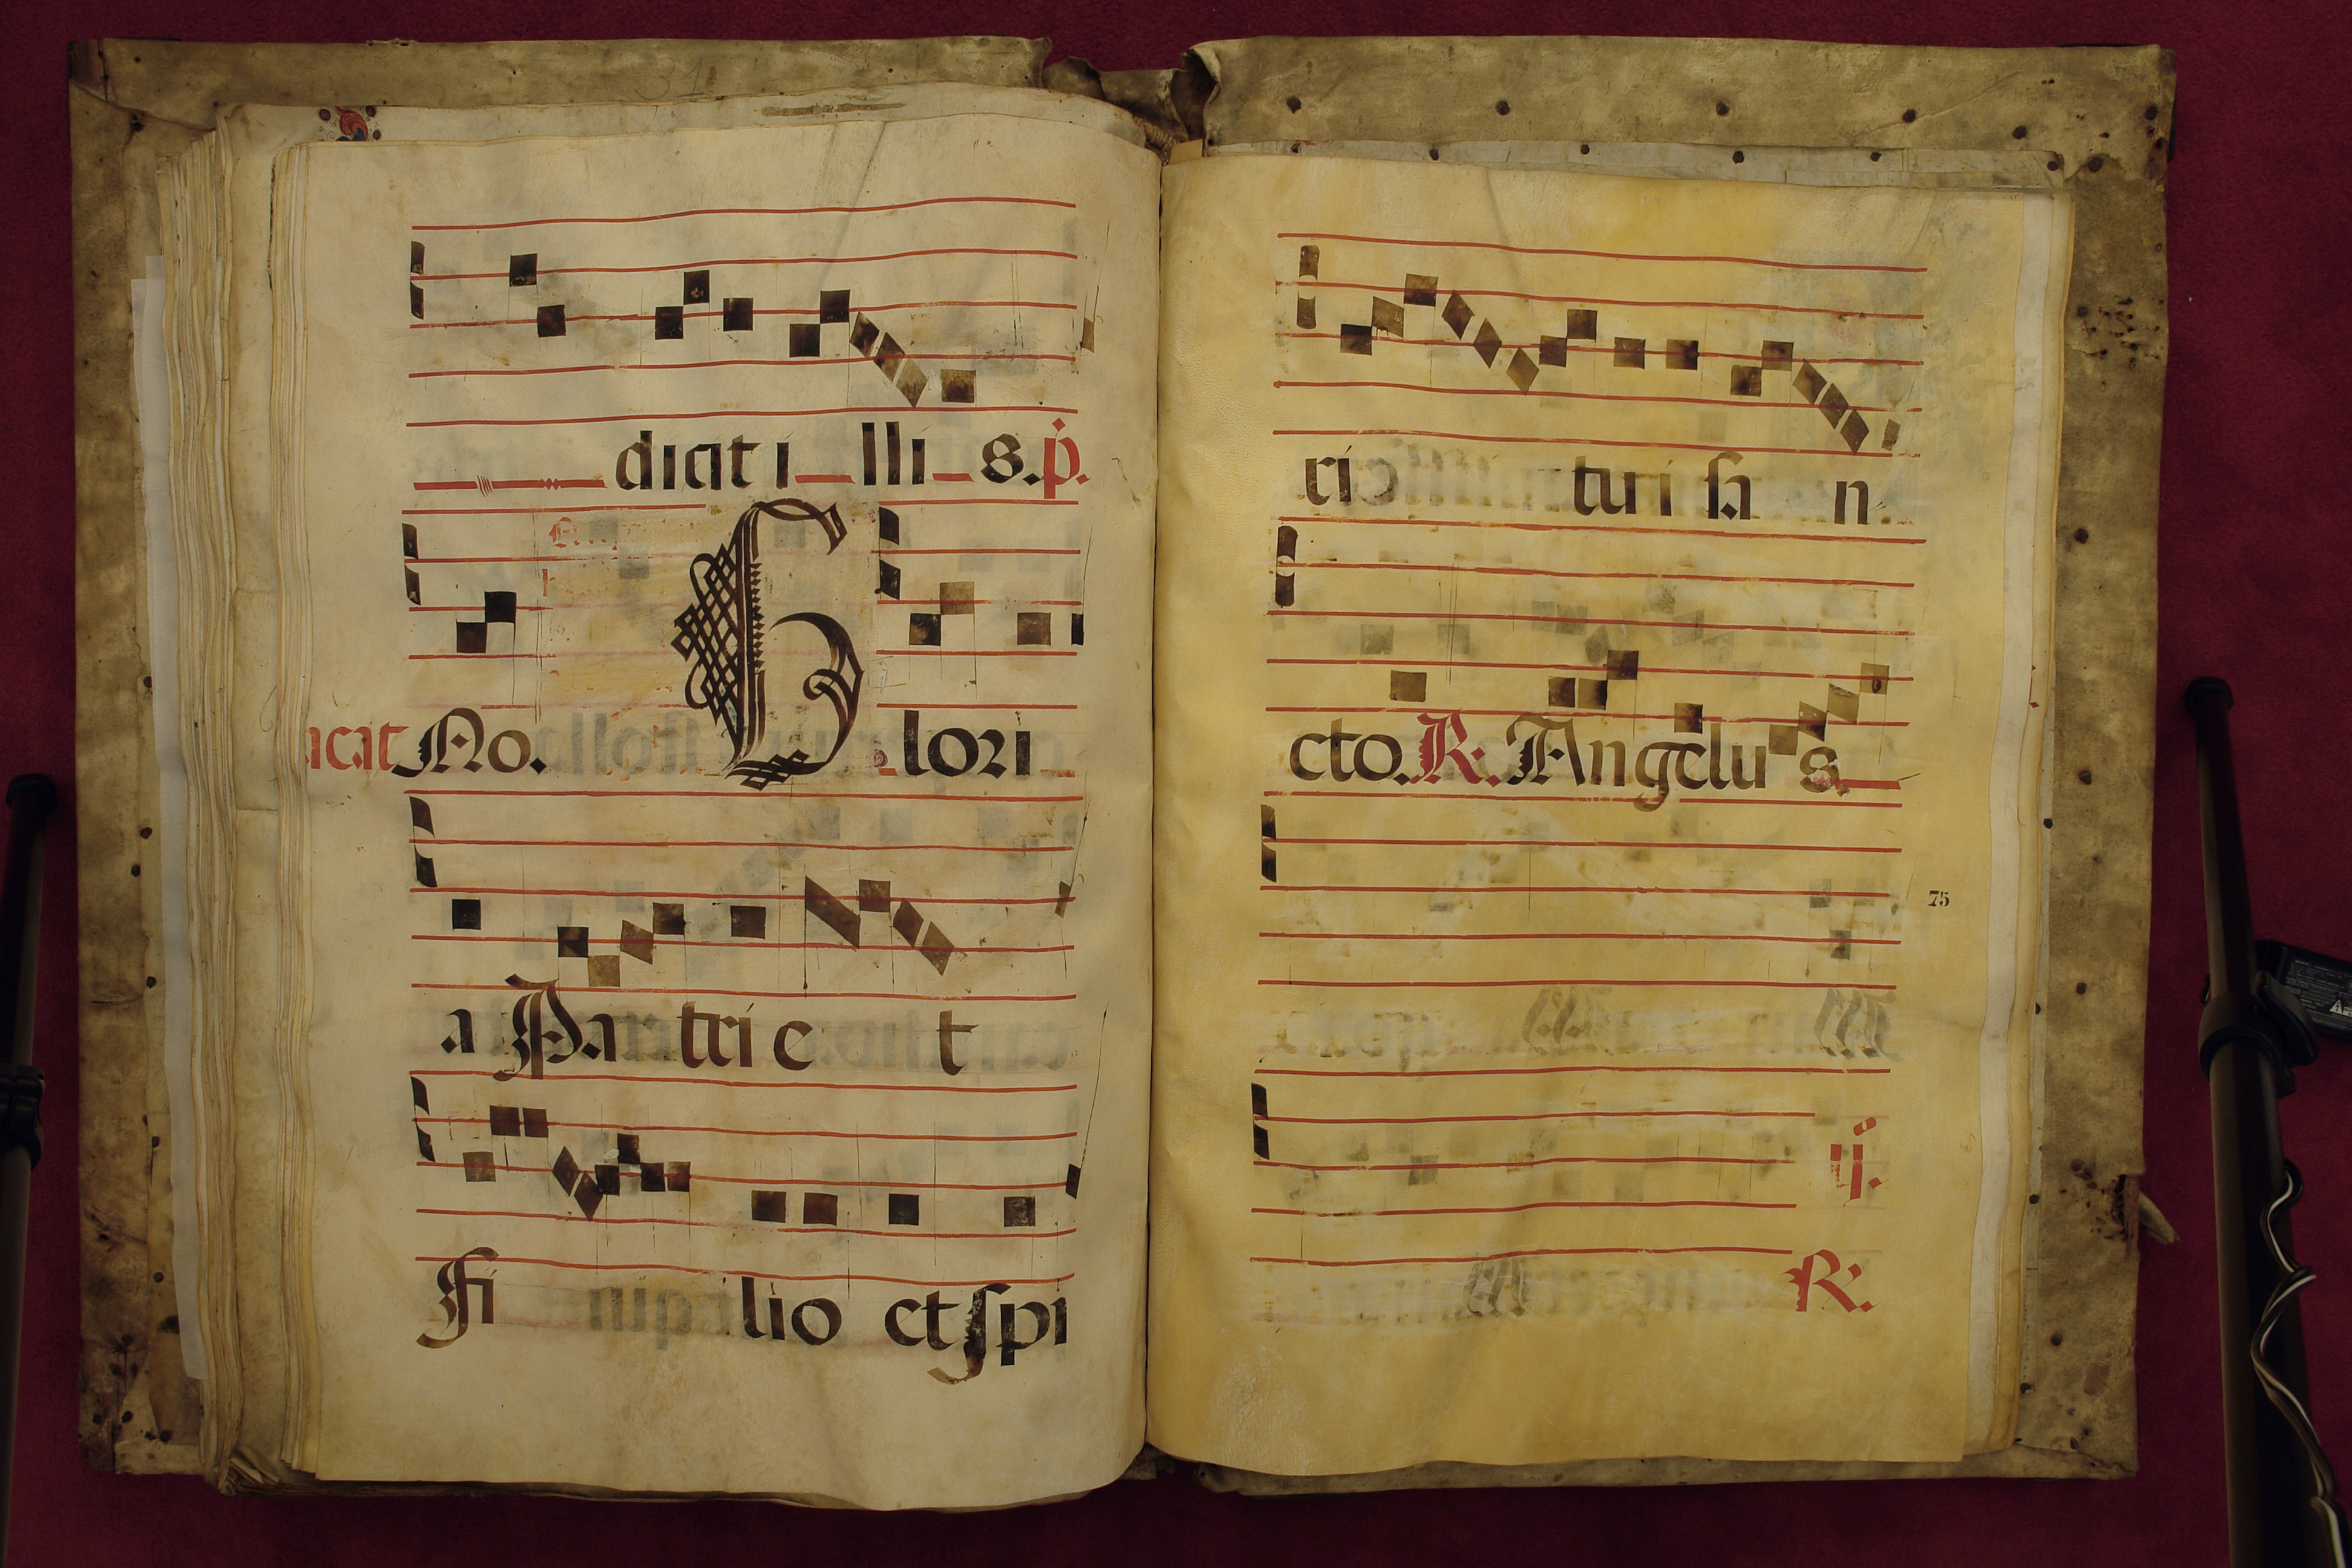 dicit i lli s. p.
icat No. Glori
a Pa tri e t
Fi lio et spi
ri tu i sa n
cto. R. Angelu s.
75
ij.
R.